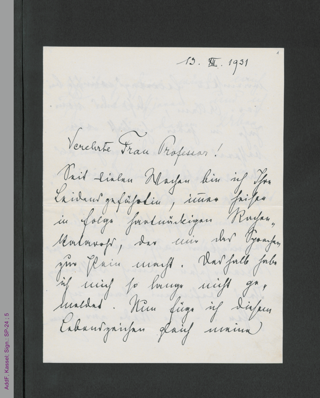 13. XI. 1931
Verehrte Frau Professor!
Seit vielen Wochen bin ich Ihre
Leidensgefährtin, immer heiser
in Folge hartnäckigen Rachen-
katarrhs, der mir das Sprechen
zur Pein macht. Deshalb habe
ich mich so lange nicht ge-
meldet. Nun füge ich diesem
Lebenszeichen gleich meine
AddF, Kassel, Sign.: SP-24 ; 5